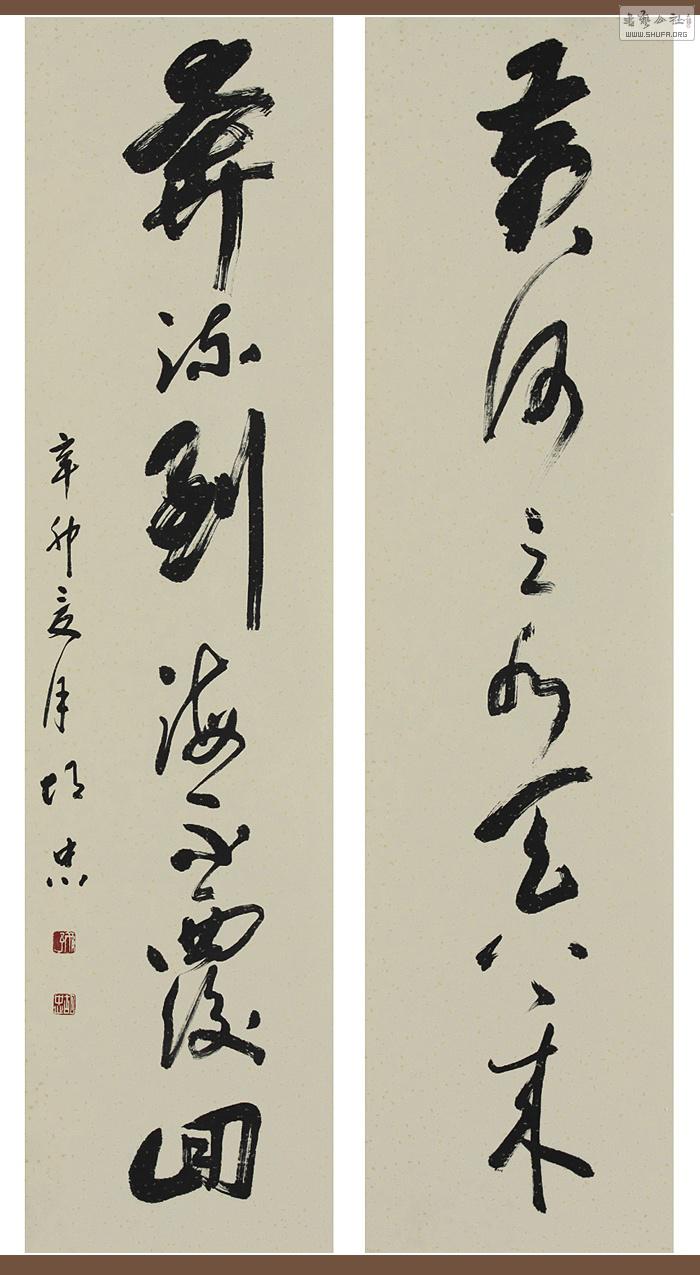 黄河之水天上来
奔流到海不覆回
辛卯夏月 胡忠
書藝公社
WWW.SHUFA.ORG